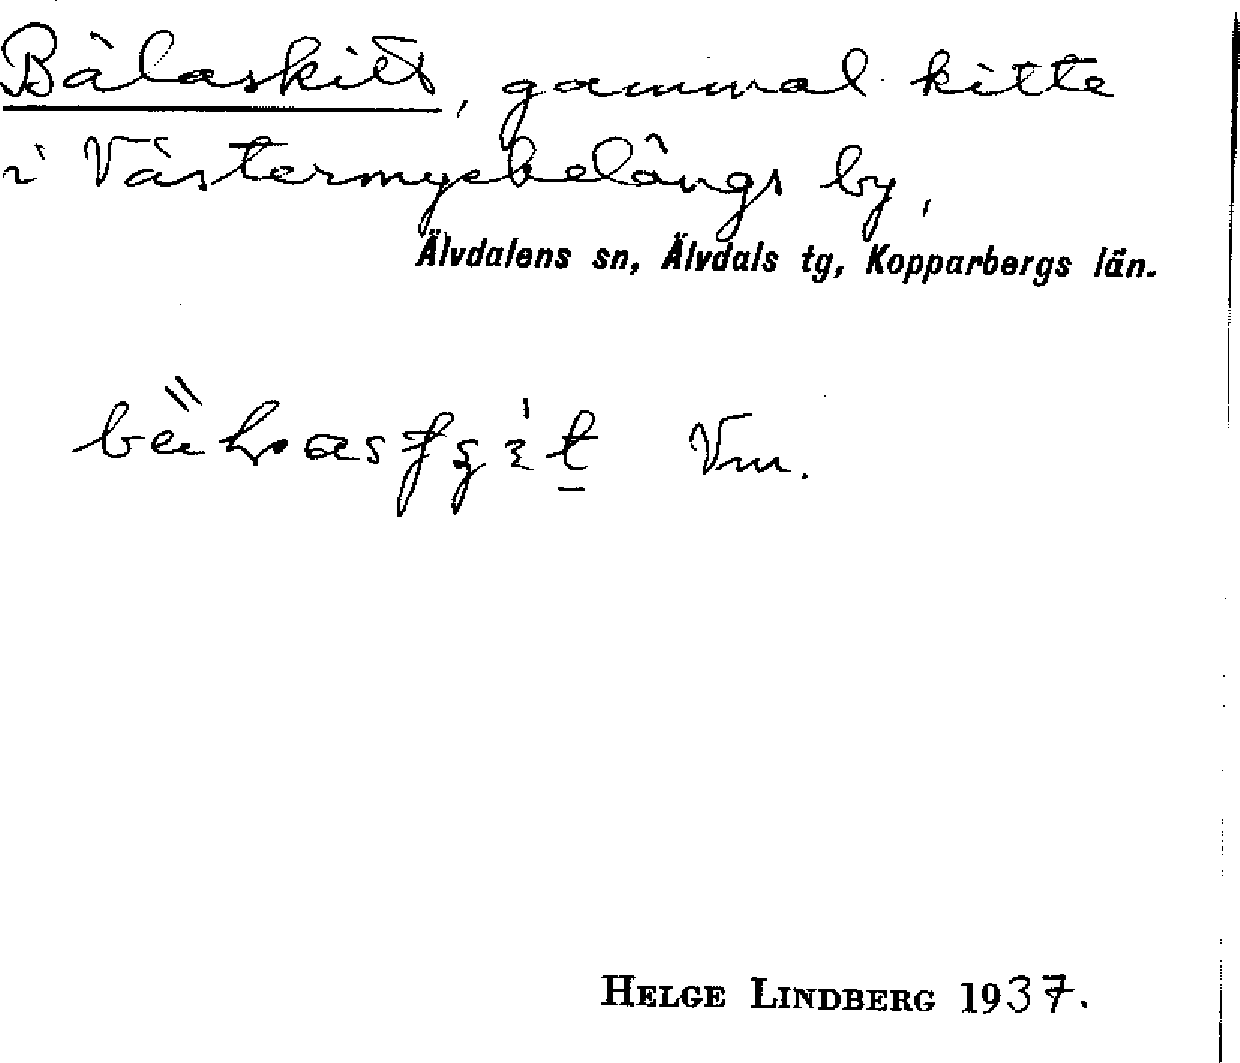 Bälaskitt, gammal kitte
i Västermyckelängs by,
Älvdalens sn, Älvdals tg, Kopparbergs län.
Vm.
HELGE LINDBERG 1937.